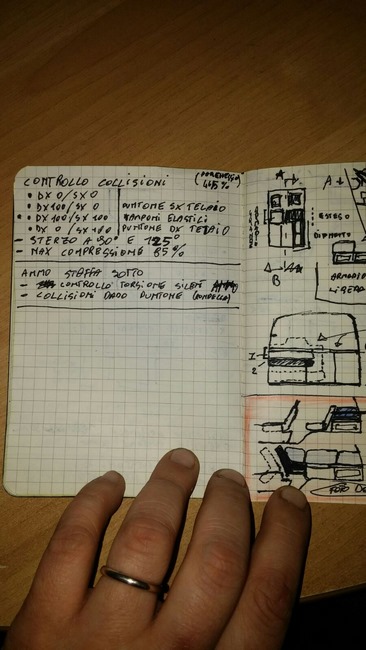 CONTROLLO COLLISIONI
• DX 0/SX 0
• DX 100/SX 0 PUNTONE SX TELAIO
• DX 100/SX 100 TAMPONI ELASTICI
• DX 0 / SX 100 PUNTONE DX TELAIO
- STERZO A 90° E
- MAX COMPRESSIONE 85%
AMMO STAFFA SOTTO
- CONTROLLO TORSIONE SILENT
- COLLISIONI DADO PUNTONE
A
A
B
ESTESO
ARMADIO
LIBERA
1
2
FOTO